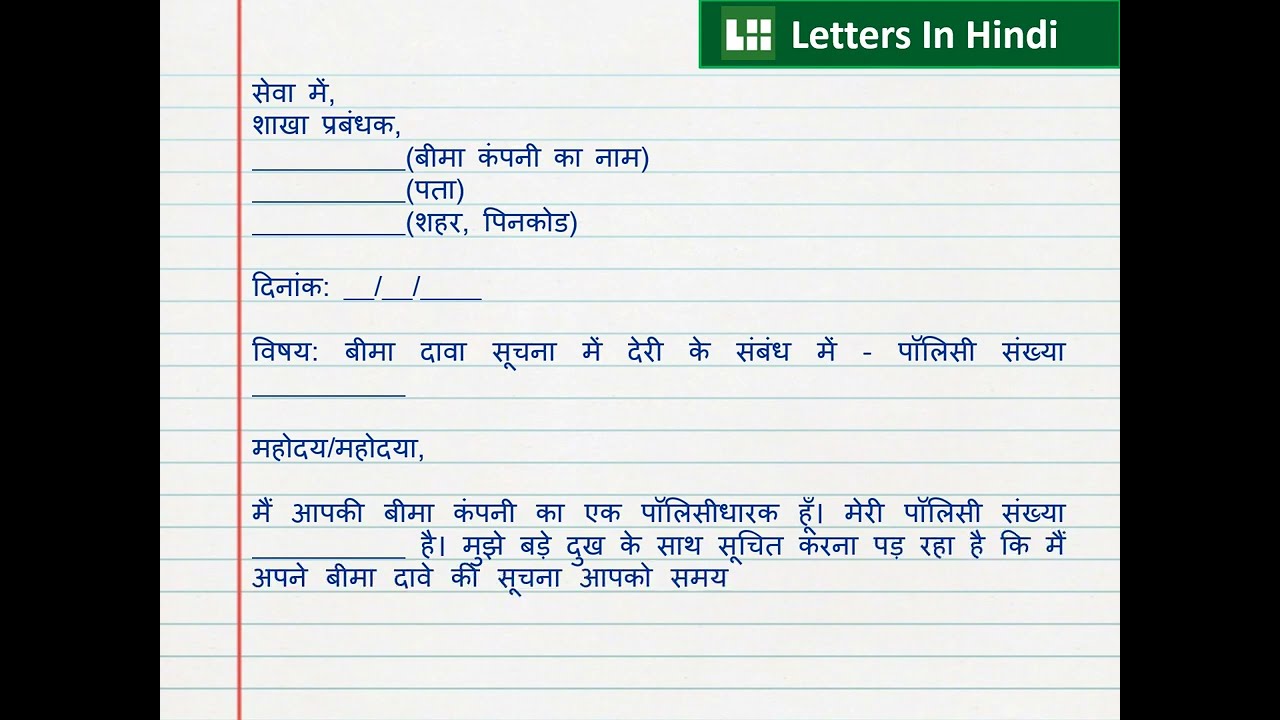 Letters In Hindi
सेवा में,
शाखा प्रबंधक,
__________(बीमा कंपनी का नाम)
__________(पता)
__________(शहर, पिनकोड)
दिनांक: __/__/____
विषय: बीमा दावा सूचना में देरी के संबंध में - पॉलिसी संख्या
__________
महोदय/महोदया,
मैं आपकी बीमा कंपनी का एक पॉलिसीधारक हूँ। मेरी पॉलिसी संख्या
__________ है। मुझे बड़े दुख के साथ सूचित करना पड़ रहा है कि मैं
अपने बीमा दावे की सूचना आपको समय